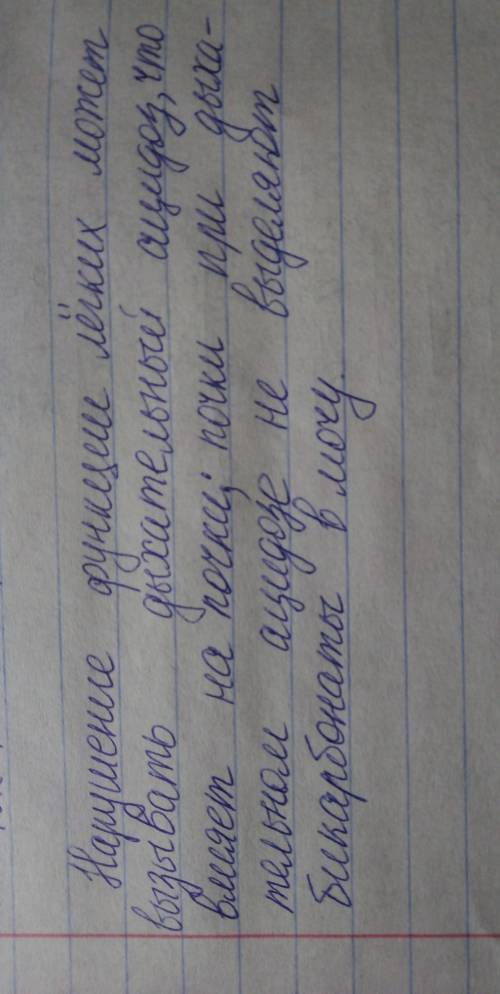 Нарушение функции лёгких может
вызывать дыхательный ацидоз, что
влияет на почки; почки при дыха-
тельном ацидозе не выделяют
бикарбонаты в мочу.